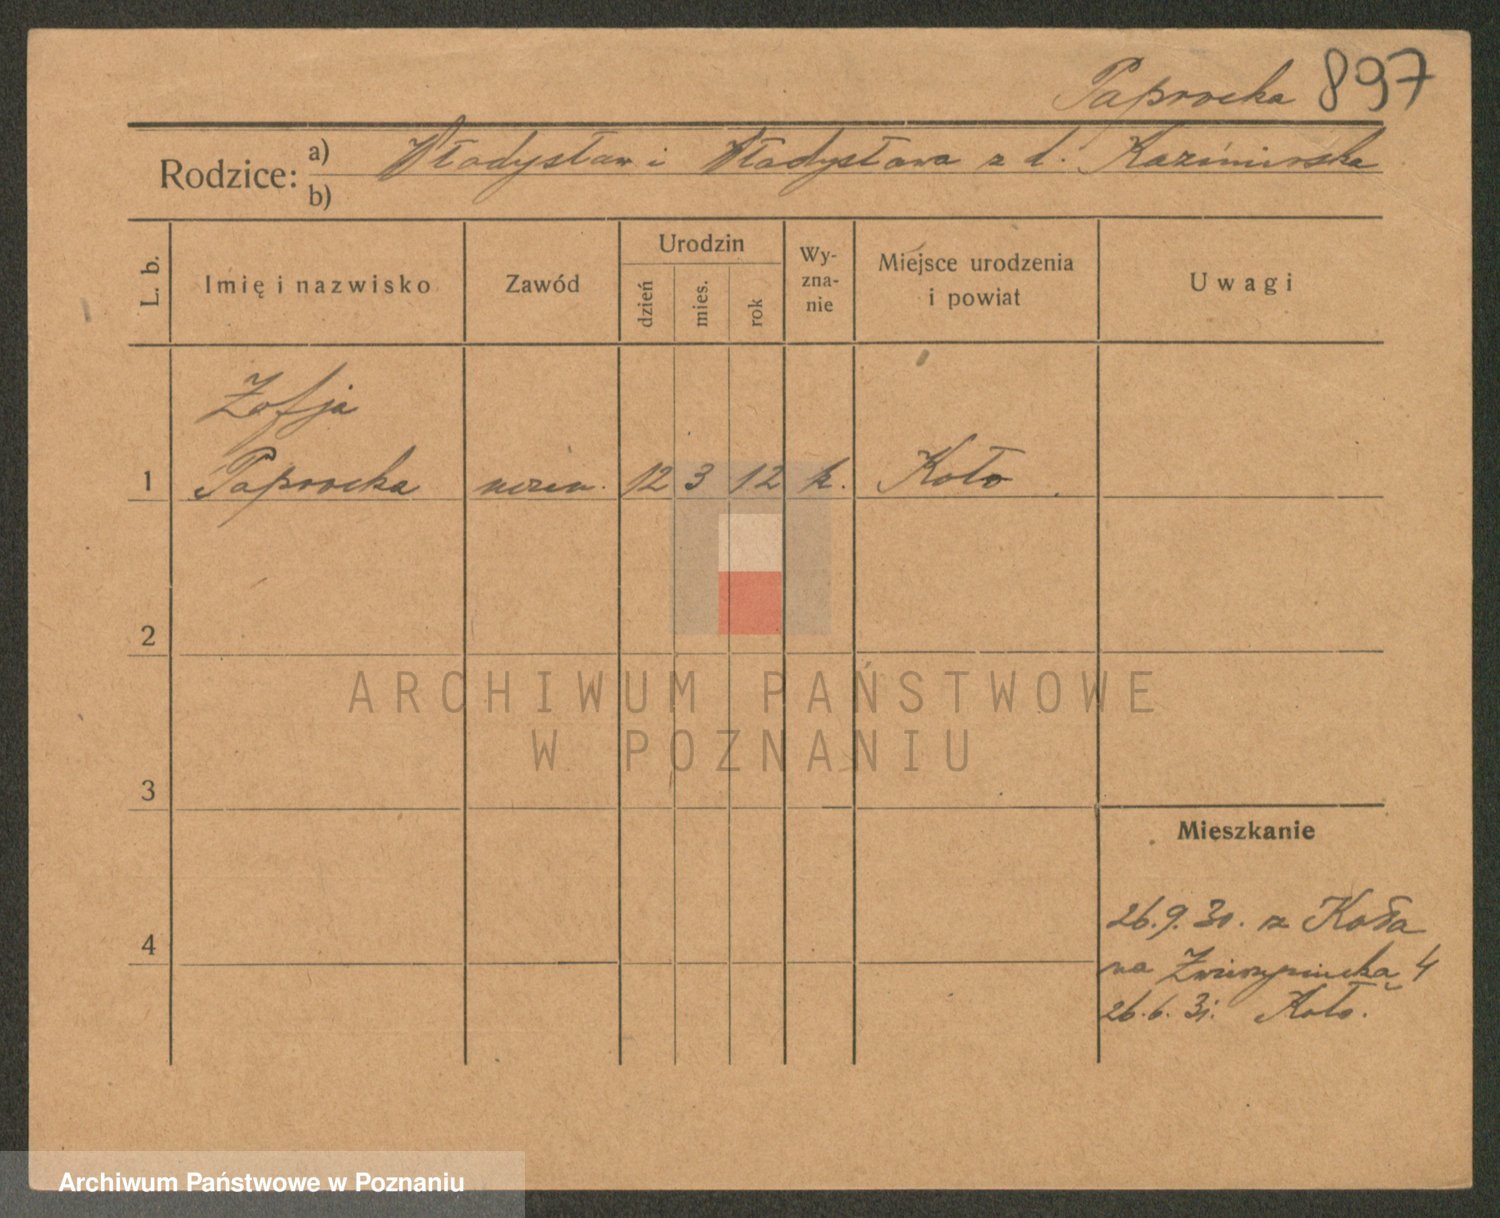 Paprocka 897
Rodzice: a) Władysław i Władysława z d. Kazimirska
b)
L. b.
Imię i nazwisko
Zawód
Urodzin
dzień
mies.
rok
Wy-
zna-
nie
Miejsce urodzenia
i powiat
Uwagi
Zofja
1 Paprocka uczen. 12 3 12 k. Koło
2
3
4
ARCHIWUM PAŃSTWOWE
W POZNANIU
Mieszkanie
26.9.30. z Koła
na Zwierzyniecką 4
26.6.31. Koło.
Archiwum Państwowe w Poznaniu